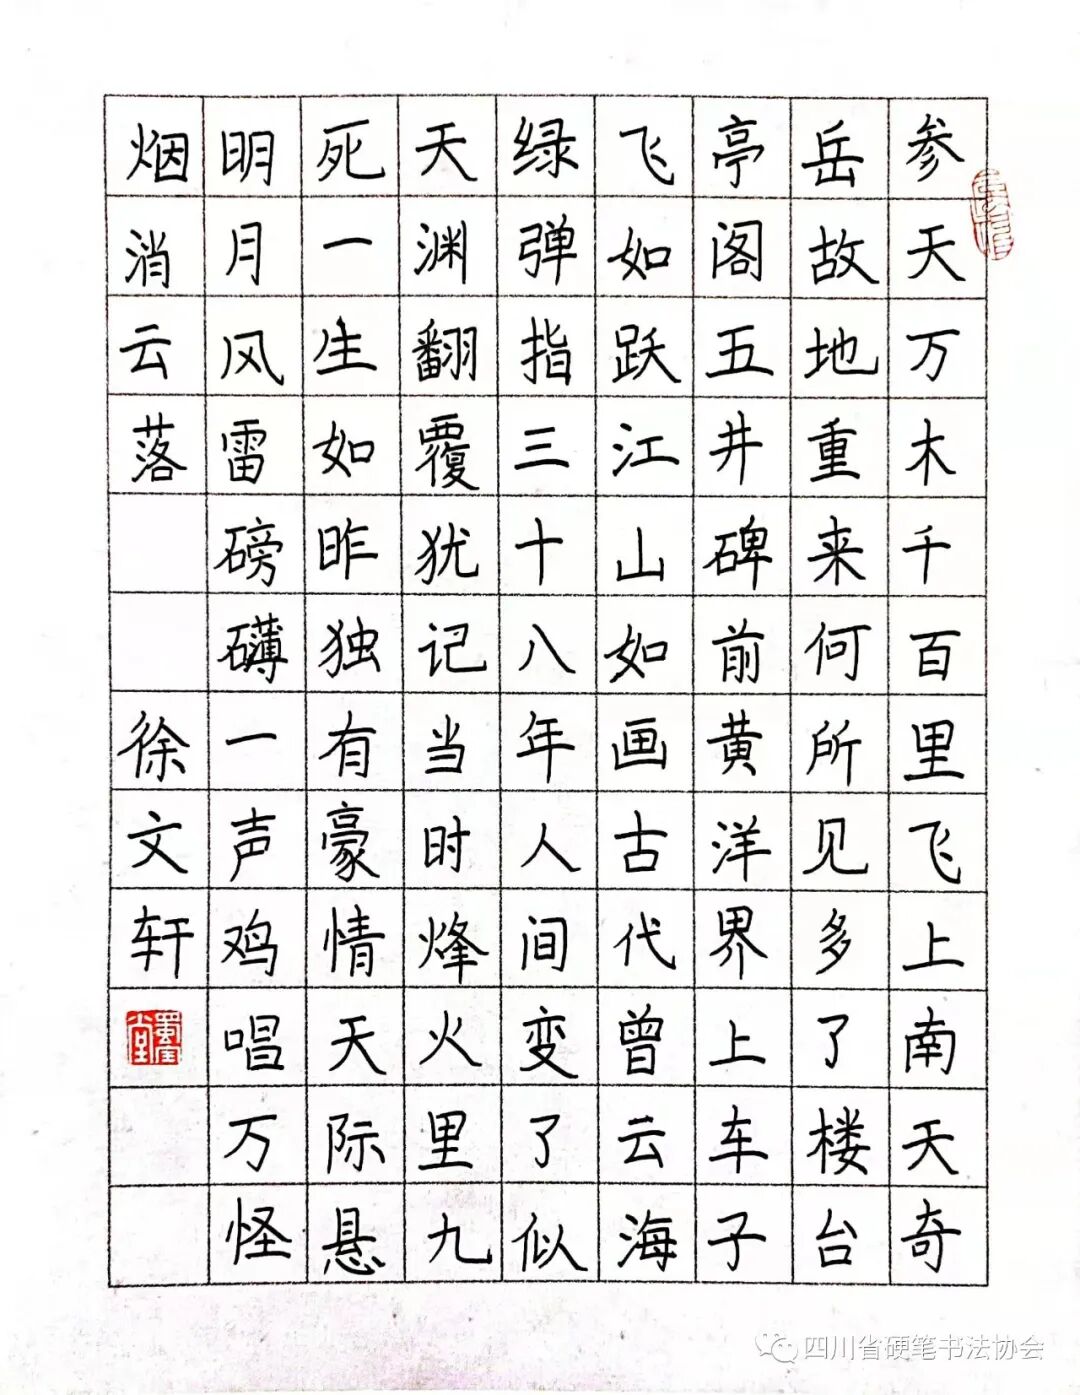 参天万木千百里飞上南天奇
岳故地重来何所见多了楼台
亭阁五井碑前黄洋界上车子
飞如跃江山如画古代曾云海
绿弹指三十八年人间变了似
天渊翻覆犹记当时烽火里九
死一生如昨独有豪情天际悬
明月风雷磅礴一声鸡唱万怪
烟消云落
徐文轩
四川省硬笔书法协会